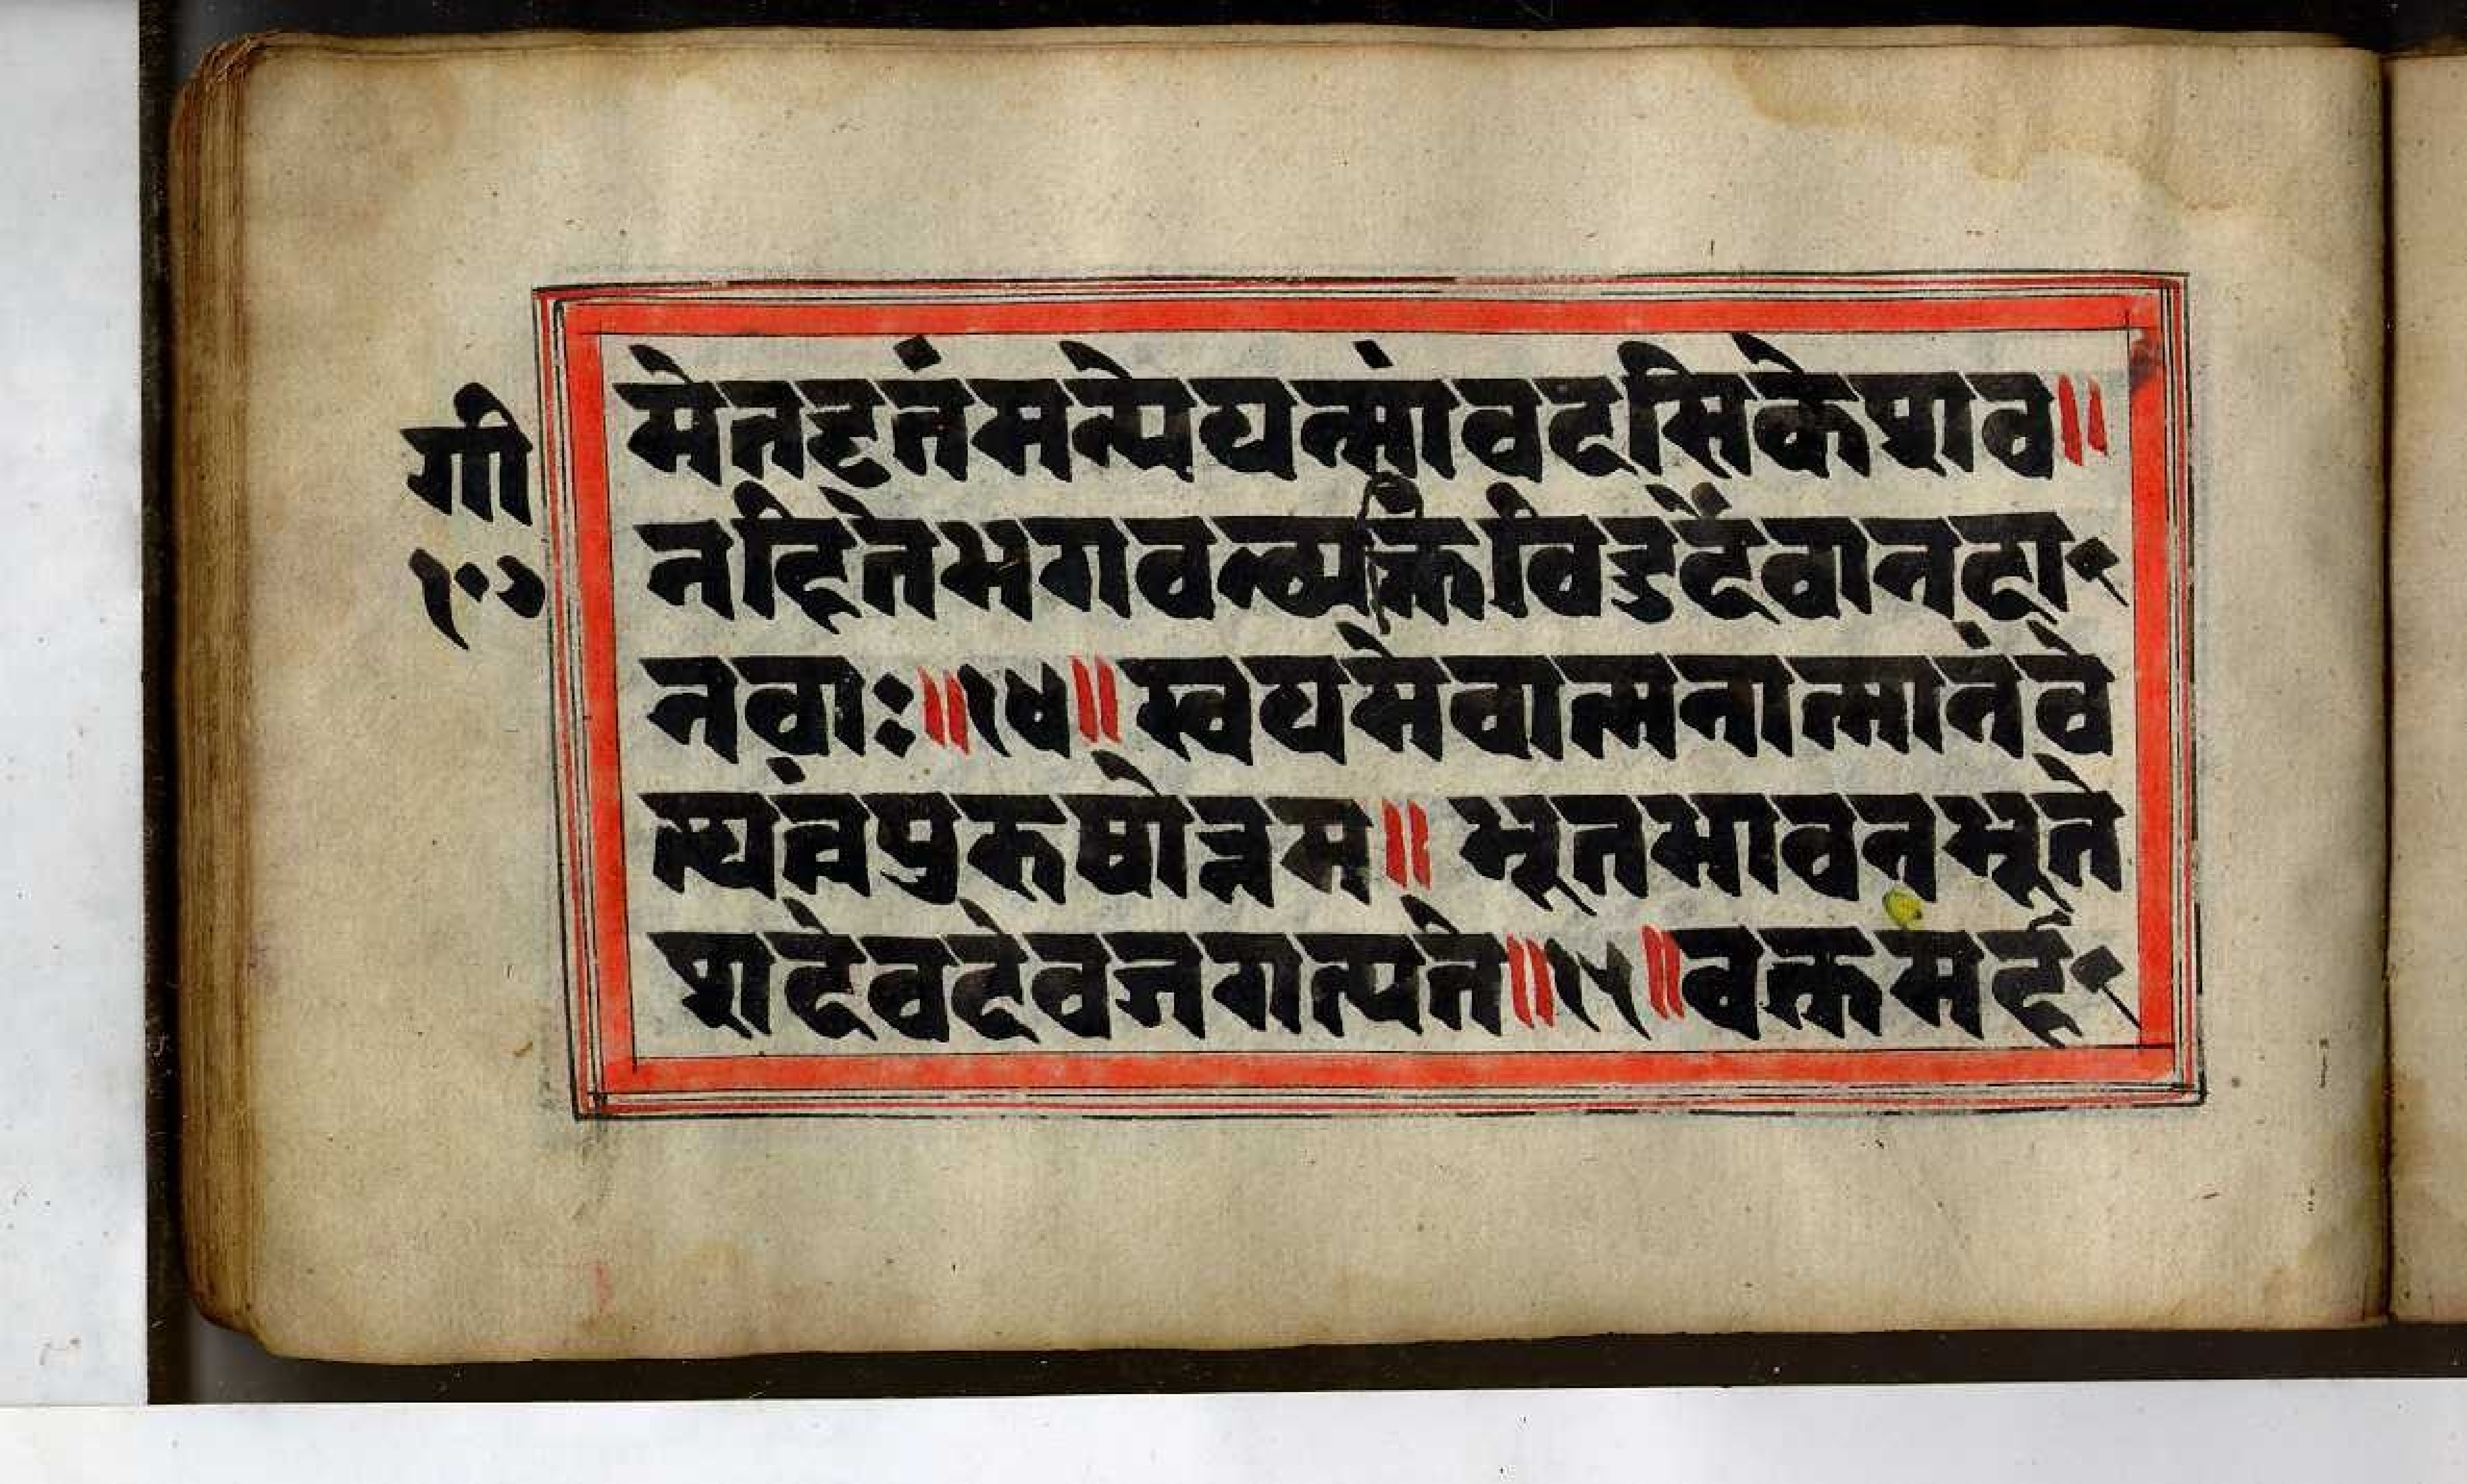 गी
१०७
मेतदृतंमन्येयन्मांवदसिकेशव॥
नहितेभगवन्व्यक्तिंविदुर्देवानदा
नवाः॥१४॥स्वयमेवात्मनात्मानंवे
त्थत्वंपुरुषोत्तम॥भूतभावनभूते
शदेवदेवजगत्पते॥१५॥वक्तुमर्ह